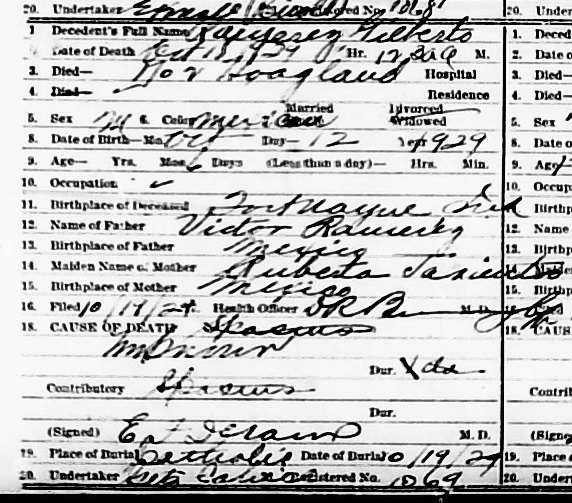 20. Undertaker Registered No. 1068 20. Under
1 Decedent's Full Name Ramirez Gilberto 1. Deced
2. Date of Death Oct 18, 1929 Hr. 12 30 a M. 2. Date o
3. Died— Hoagland Hospital 3. Died—
4. Died— Residence 4. Died—
Married Divorced
5. Sex M 6. Color Mexican Widowed 5. Sex
8. Date of Birth—Mo. Oct Day— 12 Year 1929 8. Date o
9. Age— Yrs. Mos. 6 Days (Less than a day)— Hrs. Min. 9. Age
10. Occupation 10. Occupa
11. Birthplace of Deceased Fort Wayne Ind 11. Birthp
12. Name of Father Victor Ramirez 12. Name
13. Birthplace of Father Mexico 13. Birthp
14. Maiden Name of Mother Ruberta
15. Birthplace of Mother Mexico 15. Birthp
16. Filed 10/19/29. Health Officer M. D.
18. CAUSE OF DEATH Spasms 18. CAUS
Unknown
Dur. da
Contributory Spasms Contrib
Dur.
(Signed) M. D. (Signe
19. Place of Burial Catholic Date of Burial 10/19/29 19. Place
20. Undertaker Registered No. 1069 20. Under